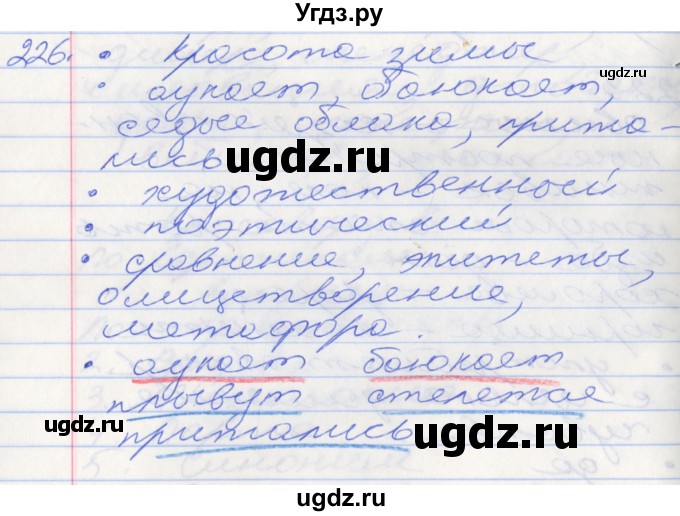 Угдз.ру
226. • Красота зимы
• аукает, баюкает,
седые облака, прита-
лись
• художественный
• поэтический
• сравнение, эпитеты,
олицетворение,
метафора.
• аукает баюкает
плывут стелется
притались
ugdz.ru
ugdz.ru
ugdz.ru
ugdz.ru
ugdz.ru